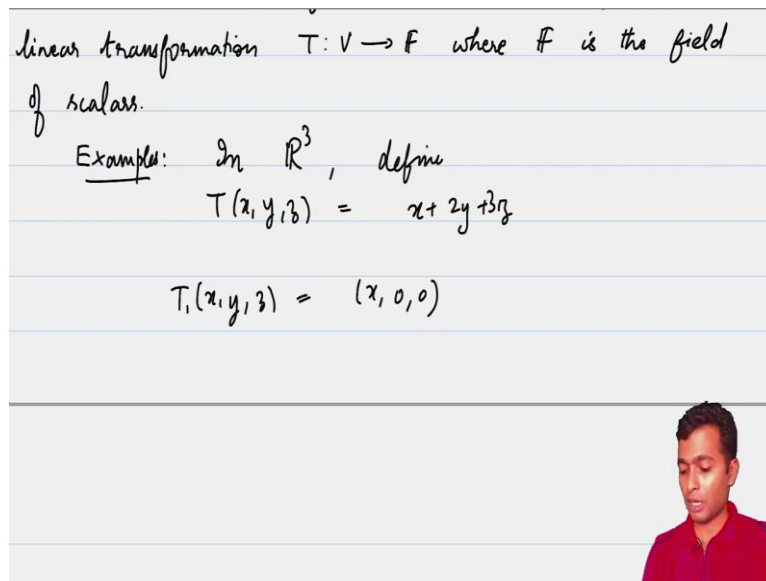 linear transformation T: V → F where F is the field
of scalars.
Examples: In ℝ³, define
T(x, y, z) = x + 2y + 3z
T₁(x, y, z) = (x, 0, 0)